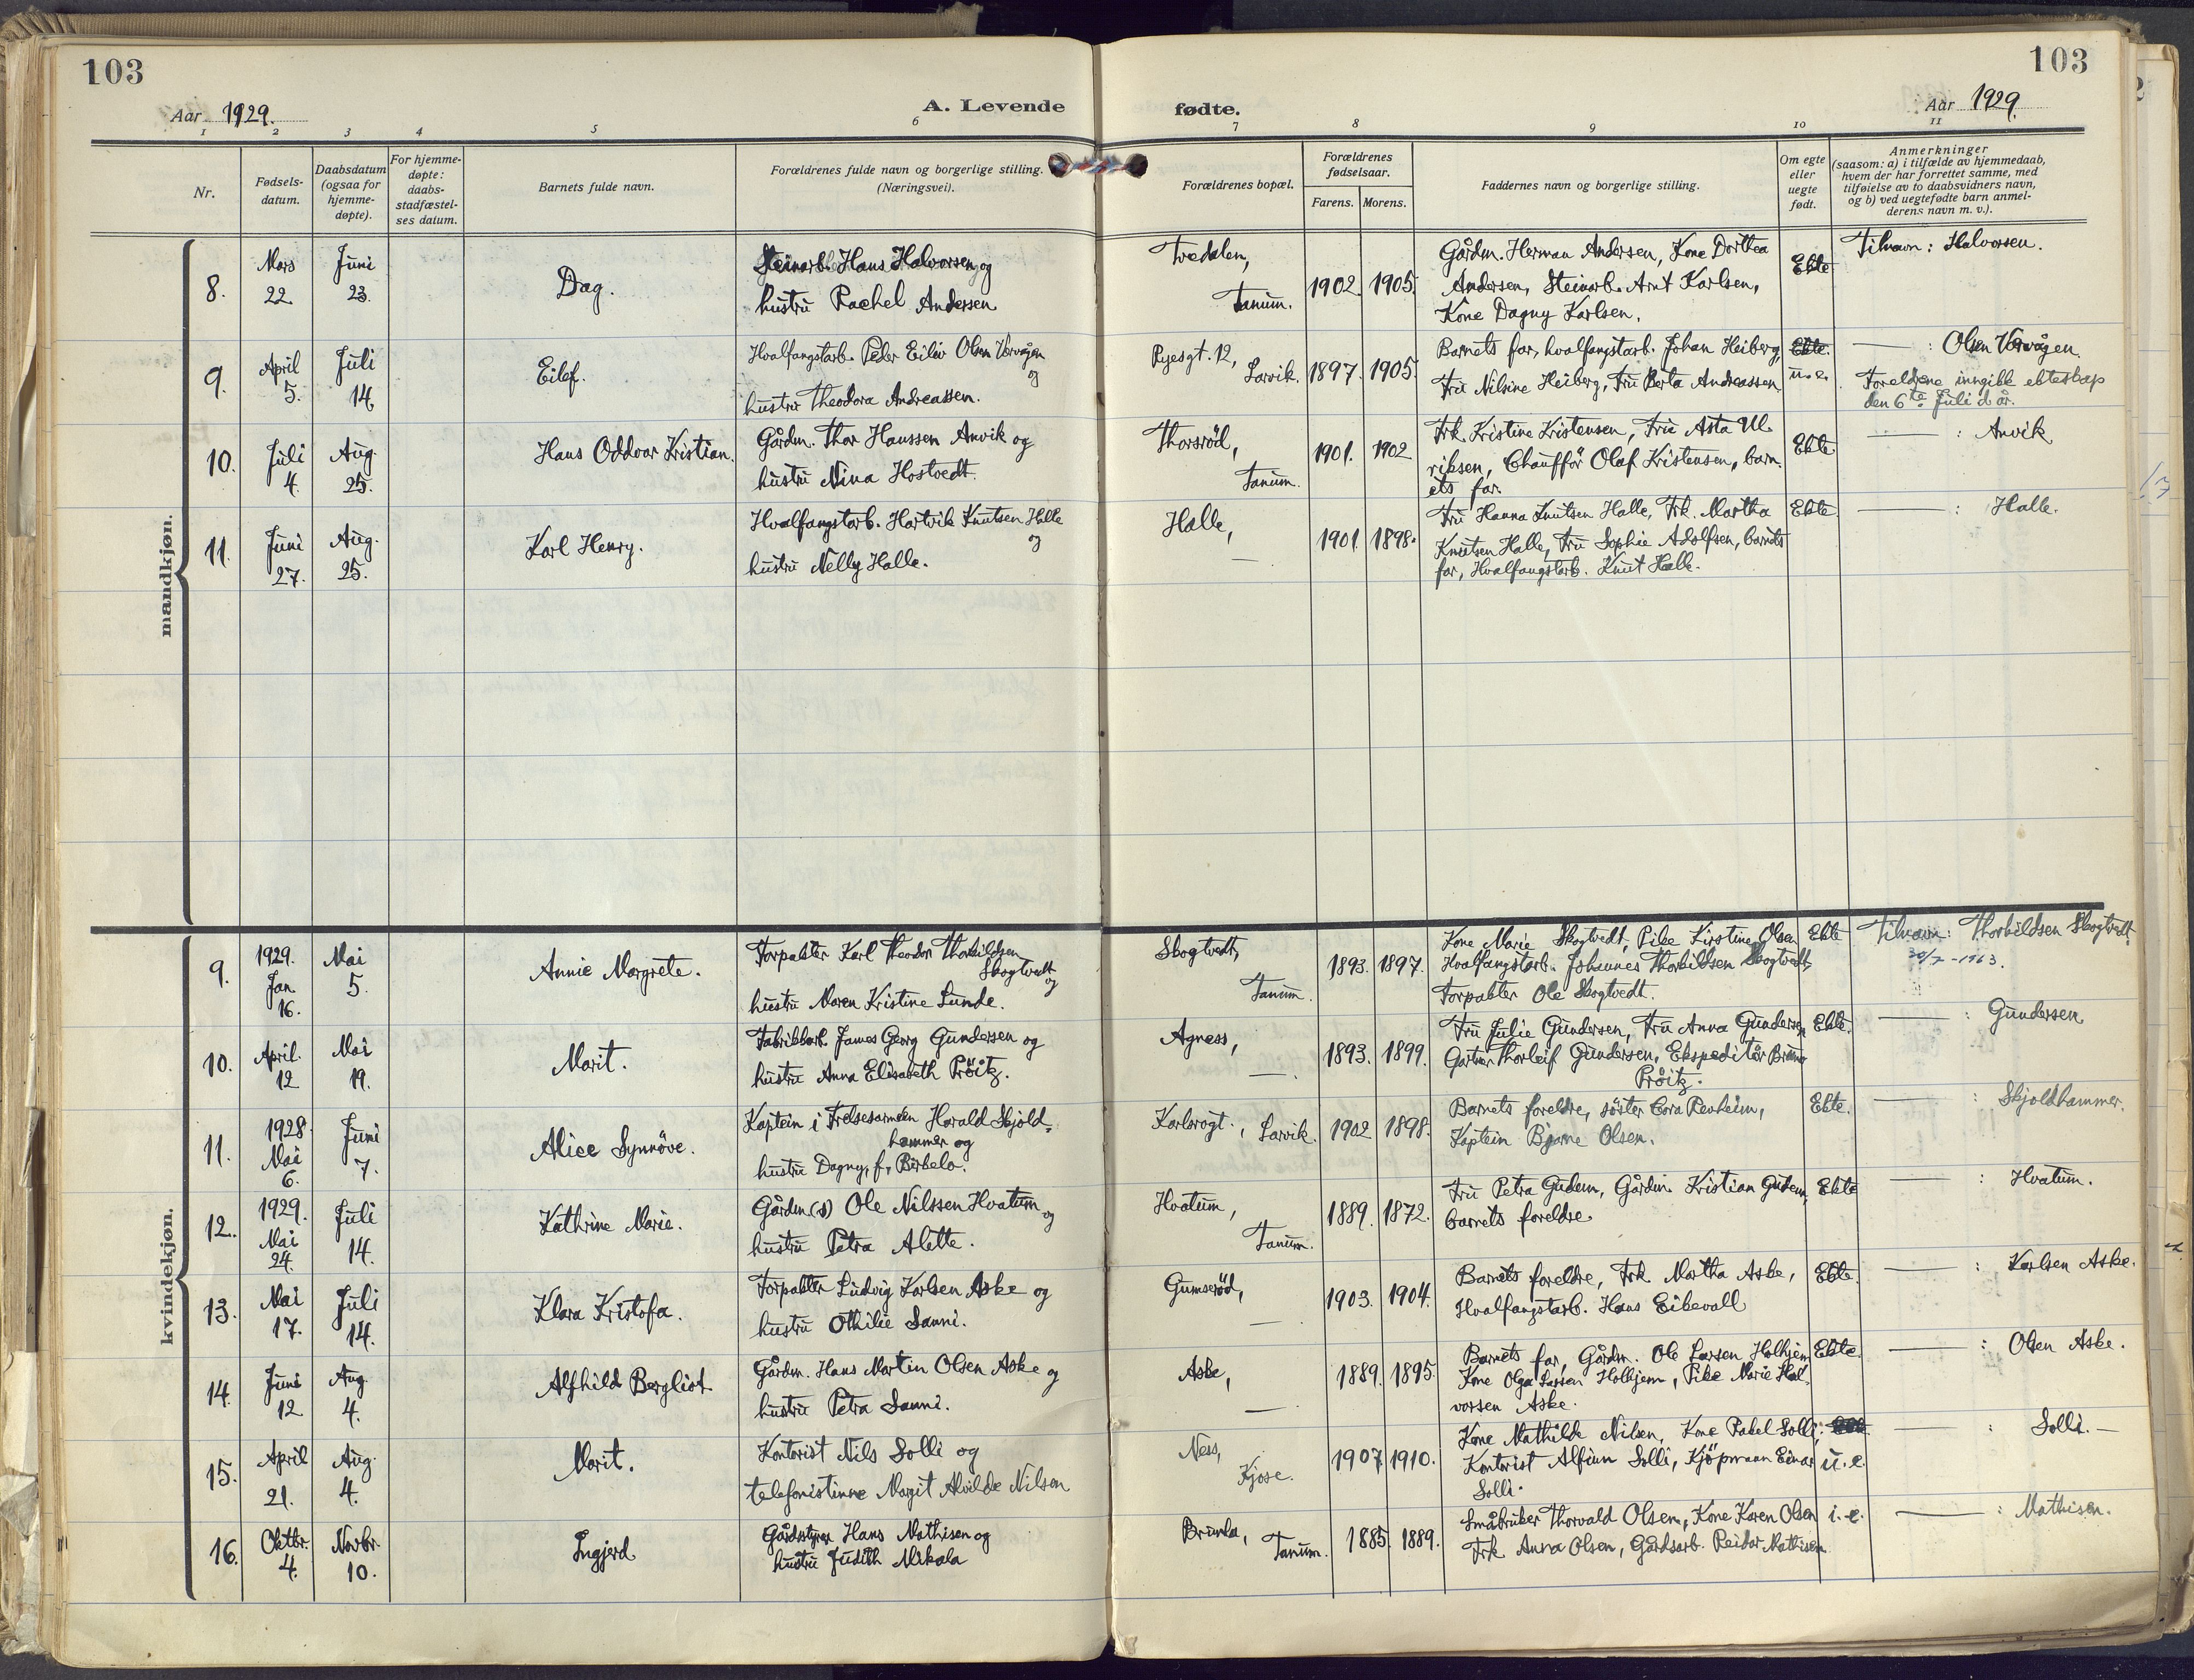 103
Aar 1929.
A. Levende
1 2 3 4 5 6
Nr.
Fødsels-
datum.
Daabsdatum
(ogsaa for
hjemme-
døpte).
For hjemme-
døpte:
daabs-
stadfæstel-
ses datum.
Barnets fulde navn.
Forældrenes fulde navn og borgerlige stilling.
(Næringsvei).
mandkjøn.
8.
Mars
22.
Juni
23.
Dag.
Steinarb. Hans Halvorsen og
hustru Rachel Andersen
9.
April
5.
Juli
14.
Eilef.
Hvalfangstarb. Peder Eiliv Olsen Varvågen
og
hustru Theodora Andreassen.
10.
Juli
4.
Aug.
25.
Hans Oddvar Kristian.
Gårdm. Thor Hanssen Anvik og
hustru Nina Hostvedt.
11.
Juni
27.
Aug.
25.
Karl Henry.
Hvalfangstarb. Hartvik Knutsen Halle
og
hustru Nelly Halle.
kvindekjøn.
9.
1929.
Jan.
16.
Mai
5.
Annie Margrete.
Forpakter Karl Theodor Thorkildsen
Skogtvedt
og
hustru Maren Kristine Lunde.
10.
April.
12
Mai
19.
Marit.
Fabrikkarb. James Georg Gundersen og
hustru Anna Elisabeth Pröitz.
11.
1928.
Mai
6.
Juni
7.
Alice Synnöve.
Kaptein i Frelsesarméen Harald Skjold-
hammer og
hustru Dagny, f. Birkelo.
12.
1929.
Mai
24.
Juli
14.
Kathrine Marie.
Gårdm(s) Ole Nilssen Hvatum
og
hustru Petra Alette.
13.
Mai
17.
Juli
14.
Klara Kristofa.
Forpakter Ludvig Karlsen Aske og
hustru Othilie Sanni.
14.
Juni
12
Aug.
4.
Alfhild Bergliot
Gårdm. Hans Martin Olsen Aske og
hustru Petra Sanni.
15.
April
21.
Aug.
4.
Marit.
Kontorist Nils Solli og
telefonistinne Margit Alvilde Nilsen
16.
Oktbr.
4.
Novbr.
10.
Ingjerd
Gårdsstyrer Hans Mathisen og
hustru Judith Mikala
103
fødte.
Aar 1929.
7 8 9 10 11
Forældrenes bopæl.
Forældrenes
fødselsaar.
Farens. Morens.
Faddernes navn og borgerlige stilling.
Om egte
eller
uegte
født.
Anmerkninger
(saasom: a) i tilfælde av hjemmedaab,
hvem der har forrettet samme, med
tilføielse av to daabsvidners navn,
og b) ved uegtefødte barn anmel-
derens navn m. v.).
Tvedalen,
Tanum.
1902. 1905.
Gårdm. Herman Andersen, Kone Dorthea
Andersen, Steinarb. Arnt Karlsen,
Kone Dagny Karlsen.
Ekte
Tilnavn: Halvorsen.
Ryesgt. 12,
Larvik.
1897. 1905.
Barnets far, hvalfangstarb. Johan Heiberg,
Fru Nilsine Heiberg, Fru Berta Andreassen
Ekte.
u. e.
— : Olsen Varvågen.
Foreldrene inngikk ekteskap
den 6te Juli d. år.
Thorsröd,
Tanum.
1901. 1902
Frk. Kristine Kristensen, Fru Asta Ul-
riksen, Chaufför Olaf Kristensen, barn-
ets far.
Ekte
— : Anvik
Halle,
—
1901. 1898.
Fru Hanna Knutsen Halle, Frk. Martha
Knutsen Halle, Fru Sophie Adolfsen, barnets
far, Hvalfangstarb. Knut Halle.
Ekte.
— : Halle.
Skogtvedt,
Tanum.
1893. 1897.
Kone Marie Skogtvedt, Pike Kirstine Olsen
Hvalfangstarb. Johannes Thorkildsen Skogtvedt,
Forpakter Ole Skogtvedt.
Ekte
Tilnavn: Thorkildsen Skogtvedt.
Agness,
—
1893. 1899.
Fru Julie Gundersen, Fru Anna Gundersen
Gartner Thorleif Gundersen, Ekspeditör Bruno
Pröitz.
Ekte.
— : Gundersen
Karlsrogt., Larvik.
1902 1898.
Barnets foreldre, söster Cora Revheim,
Kaptein Bjarne Olsen.
Ekte.
— : Skjoldhammer.
Hvatum,
Tanum.
1889. 1872.
Fru Petra Gudem, Gårdm. Kristian Gudem,
barnets foreldre
Ekte
— : Hvatum.
Gumseröd,
—
1903. 1904.
Barnets foreldre, Frk. Martha Aske,
Hvalfangstarb. Hans Eikevall
Ekte.
— : Karlsen Aske.
Aske,
—
1889. 1895.
Barnets far, Gårdm. Ole Larsen Holhjem
Kone Olga Larsen Holhjem, Pike Marie Hal-
vorsen Aske.
Ekte.
— : Olsen Aske.
Ness,
Kjose.
1907. 1910.
Kone Mathilde Nilsen, Kone Rakel Solli,
Kontorist Alfinn Solli, Kjöpmann Einar
Solli.
u. e.
— : Solli. —
Brunla,
Tanum.
1885. 1889.
Småbruker Thorvald Olsen, Kone Karen Olsen
Frk Anna Olsen, Gårdsarb. Reidar Mathisen
i. e.
— : Mathisen.